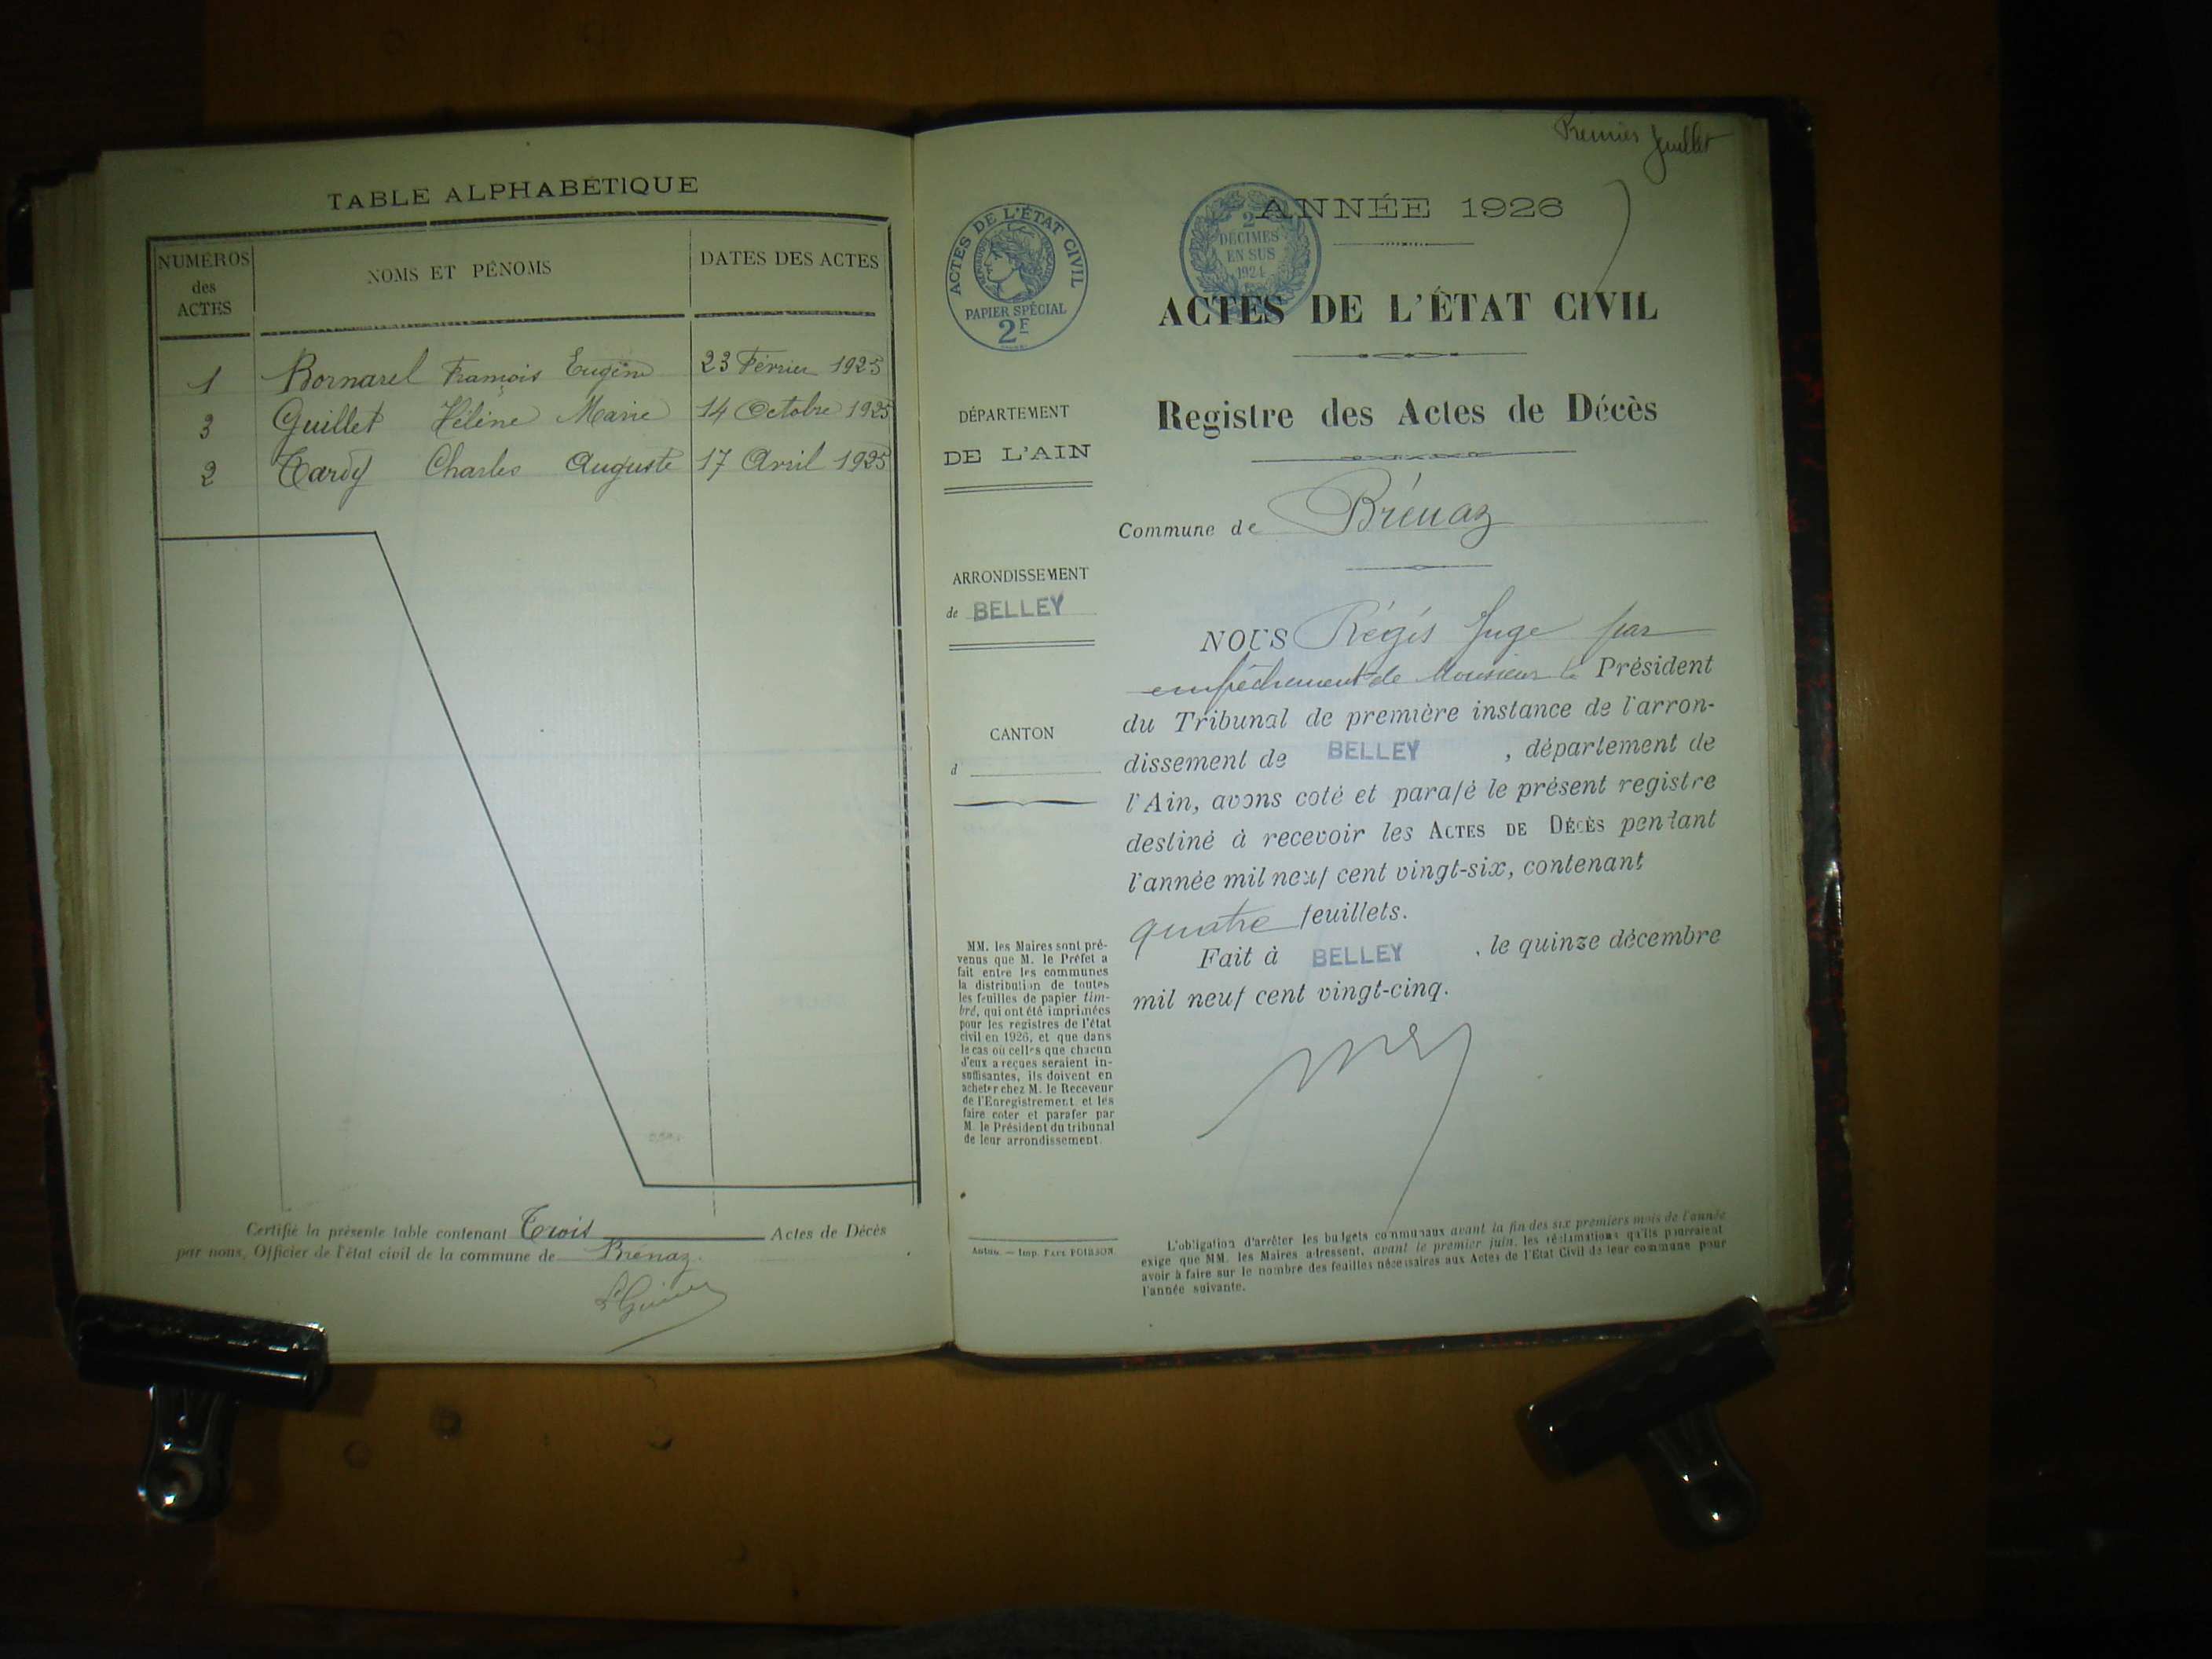 TABLE ALPHABÉTIQUE
NUMÉROS
des
ACTES
NOMS ET PÉNOMS
DATES DES ACTES
1 Bornarel François Eugène 23 Février 1925
3 Guillet Hélène Marie 14 Octobre 1925
2 Tardy Charles Auguste 17 Avril 1925
Certifié la présente table contenant Trois Actes de Décès
par nous, Officier de l'état civil de la commune de Brénaz.
Premier feuillet
ACTES DE L'ÉTAT CIVIL
RÉPUBLIQUE FRANÇAISE
PAPIER SPÉCIAL
2F
2
DÉCIMES
EN SUS
1924
ANNÉE 1926
ACTES DE L'ÉTAT CIVIL
Registre des Actes de Décès
DÉPARTEMENT
DE L'AIN
ARRONDISSEMENT
de BELLEY
CANTON
d
MM. les Maires sont pré-
venus que M. le Préfet a
fait entre les communes
la distribution de toutes
les feuilles de papier tim-
bré, qui ont été imprimées
pour les registres de l'état
civil en 1926, et que dans
le cas où celles que chacun
d'eux a reçues seraient in-
suffisantes, ils doivent en
acheter chez M. le Receveur
de l'Enregistrement et les
faire coter et parafer par
M. le Président du tribunal
de leur arrondissement.
Autun. — Imp. Paul POIRSON
Commune de Brénaz
NOUS Régis Juge par
empêchement de Monsieur le Président
du Tribunal de première instance de l'arron-
dissement de BELLEY, département de
l'Ain, avons coté et parafé le présent registre
destiné à recevoir les ACTES DE DÉCÈS pendant
l'année mil neuf cent vingt-six, contenant
quatre feuillets.
Fait à BELLEY, le quinze décembre
mil neuf cent vingt-cinq.
L'obligation d'arrêter les budgets communaux avant la fin des six premiers mois de l'année
exige que MM. les Maires adressent, avant le premier juin, les réclamations qu'ils pourraient
avoir à faire sur le nombre des feuilles nécessaires aux Actes de l'État Civil de leur commune pour
l'année suivante.